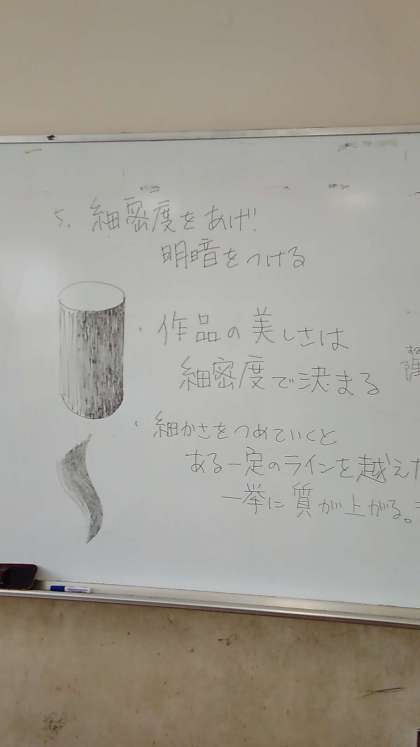 5. 細密度をあげ!
明暗をつける
・作品の美しさは
細密度で決まる
・細かさをつめていくと
ある一定のラインを越えた
一挙に質が上がる。